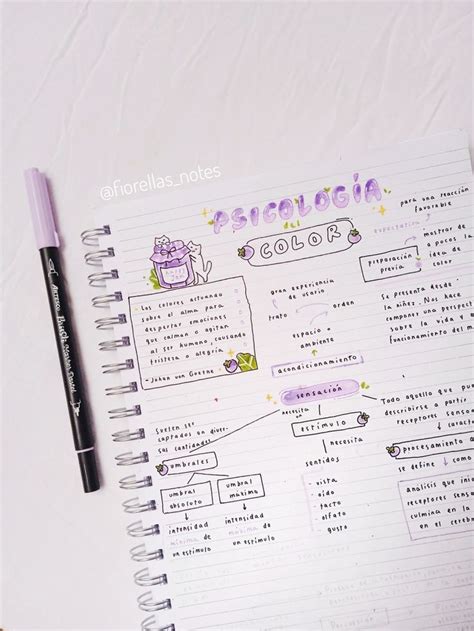 @fiorellas_notes
PSICOLOGÍA
del
COLOR
"Los colores actuando
sobre el alma para
despertar emociones
que calman o agitan
al ser humano, causando
tristeza o alegría"
- Johan von Goethe
gran experiencia
de usuario
trato
orden
espacio
ambiente
acondicionamiento
para una reacción
favorable
expectativa
mostrar de
a pocos la
idea de
color
preparación
previa
Se presenta desde
la niñez. Nos hace
campones una perspe
sobre la vida
funcionamiento del
sensación
necesita un
estímulo
necesita
sentidos
- vista
- oído
- tacto
- olfato
- gusto
Suelen ser
captados en diver-
sas cantidades
umbrales
umbral
absoluto
umbral
máximo
intensidad
mínima de
un estímulo
intensidad
máxima de
un estímulo
Todo aquello que
describirse a partir
receptores
procesamiento
se define como
análisis que
receptores
culmina en la
en el